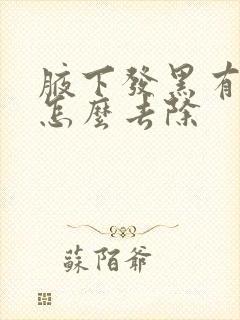 腋下發黑有
怎麼去除
蘇陌爺